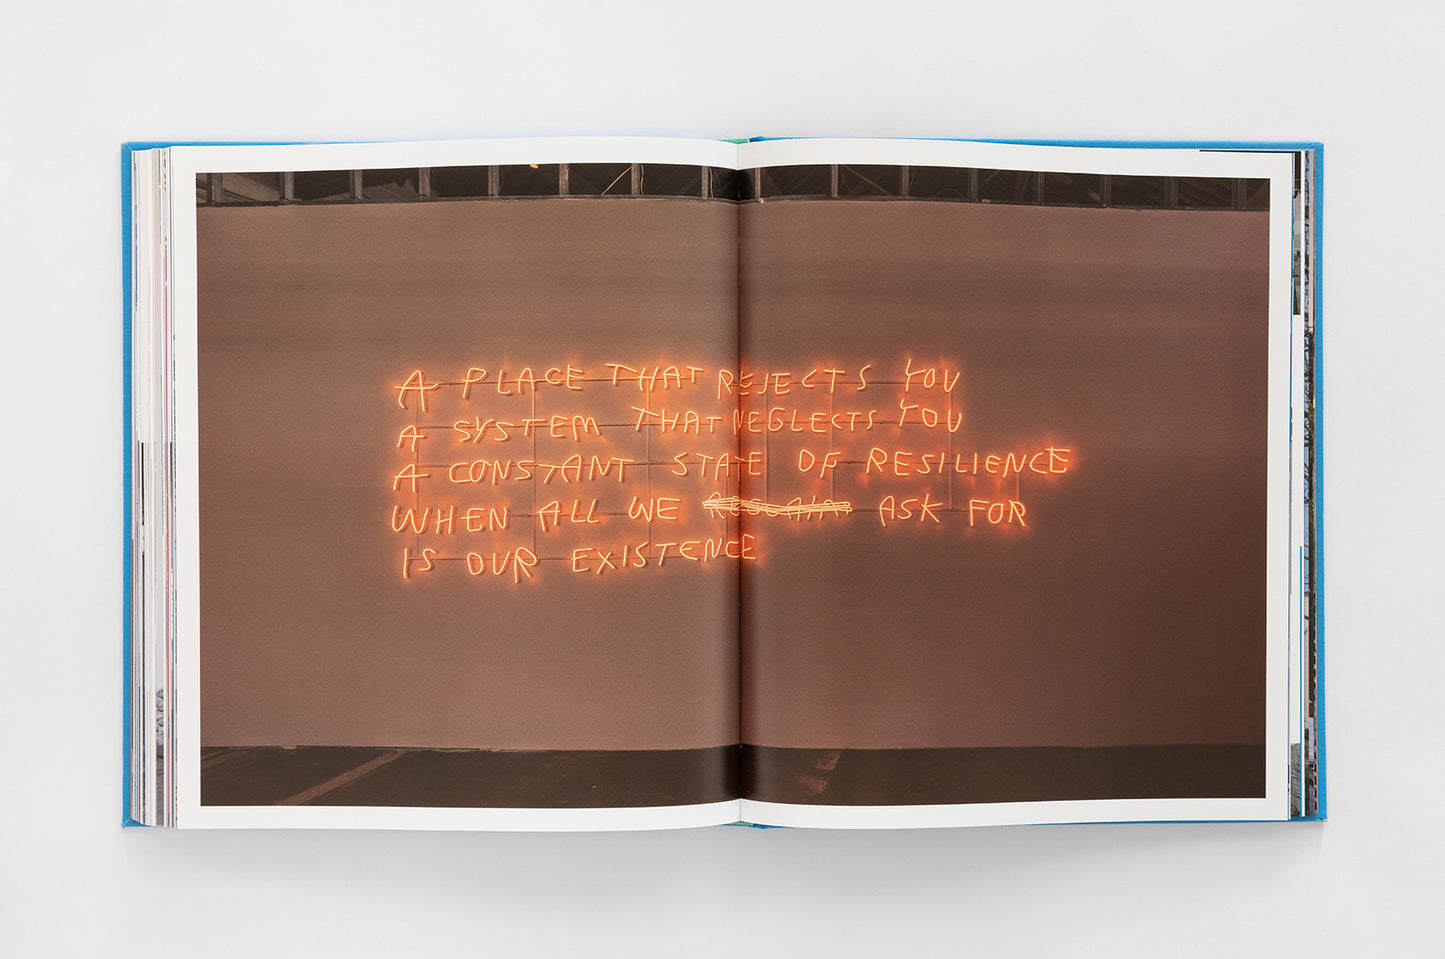 A PLACE THAT REJECTS YOU
A SYSTEM THAT NEGLECTS YOU
A CONSTANT STATE OF RESILIENCE
WHEN ALL WE ASK FOR
IS OUR EXISTENCE